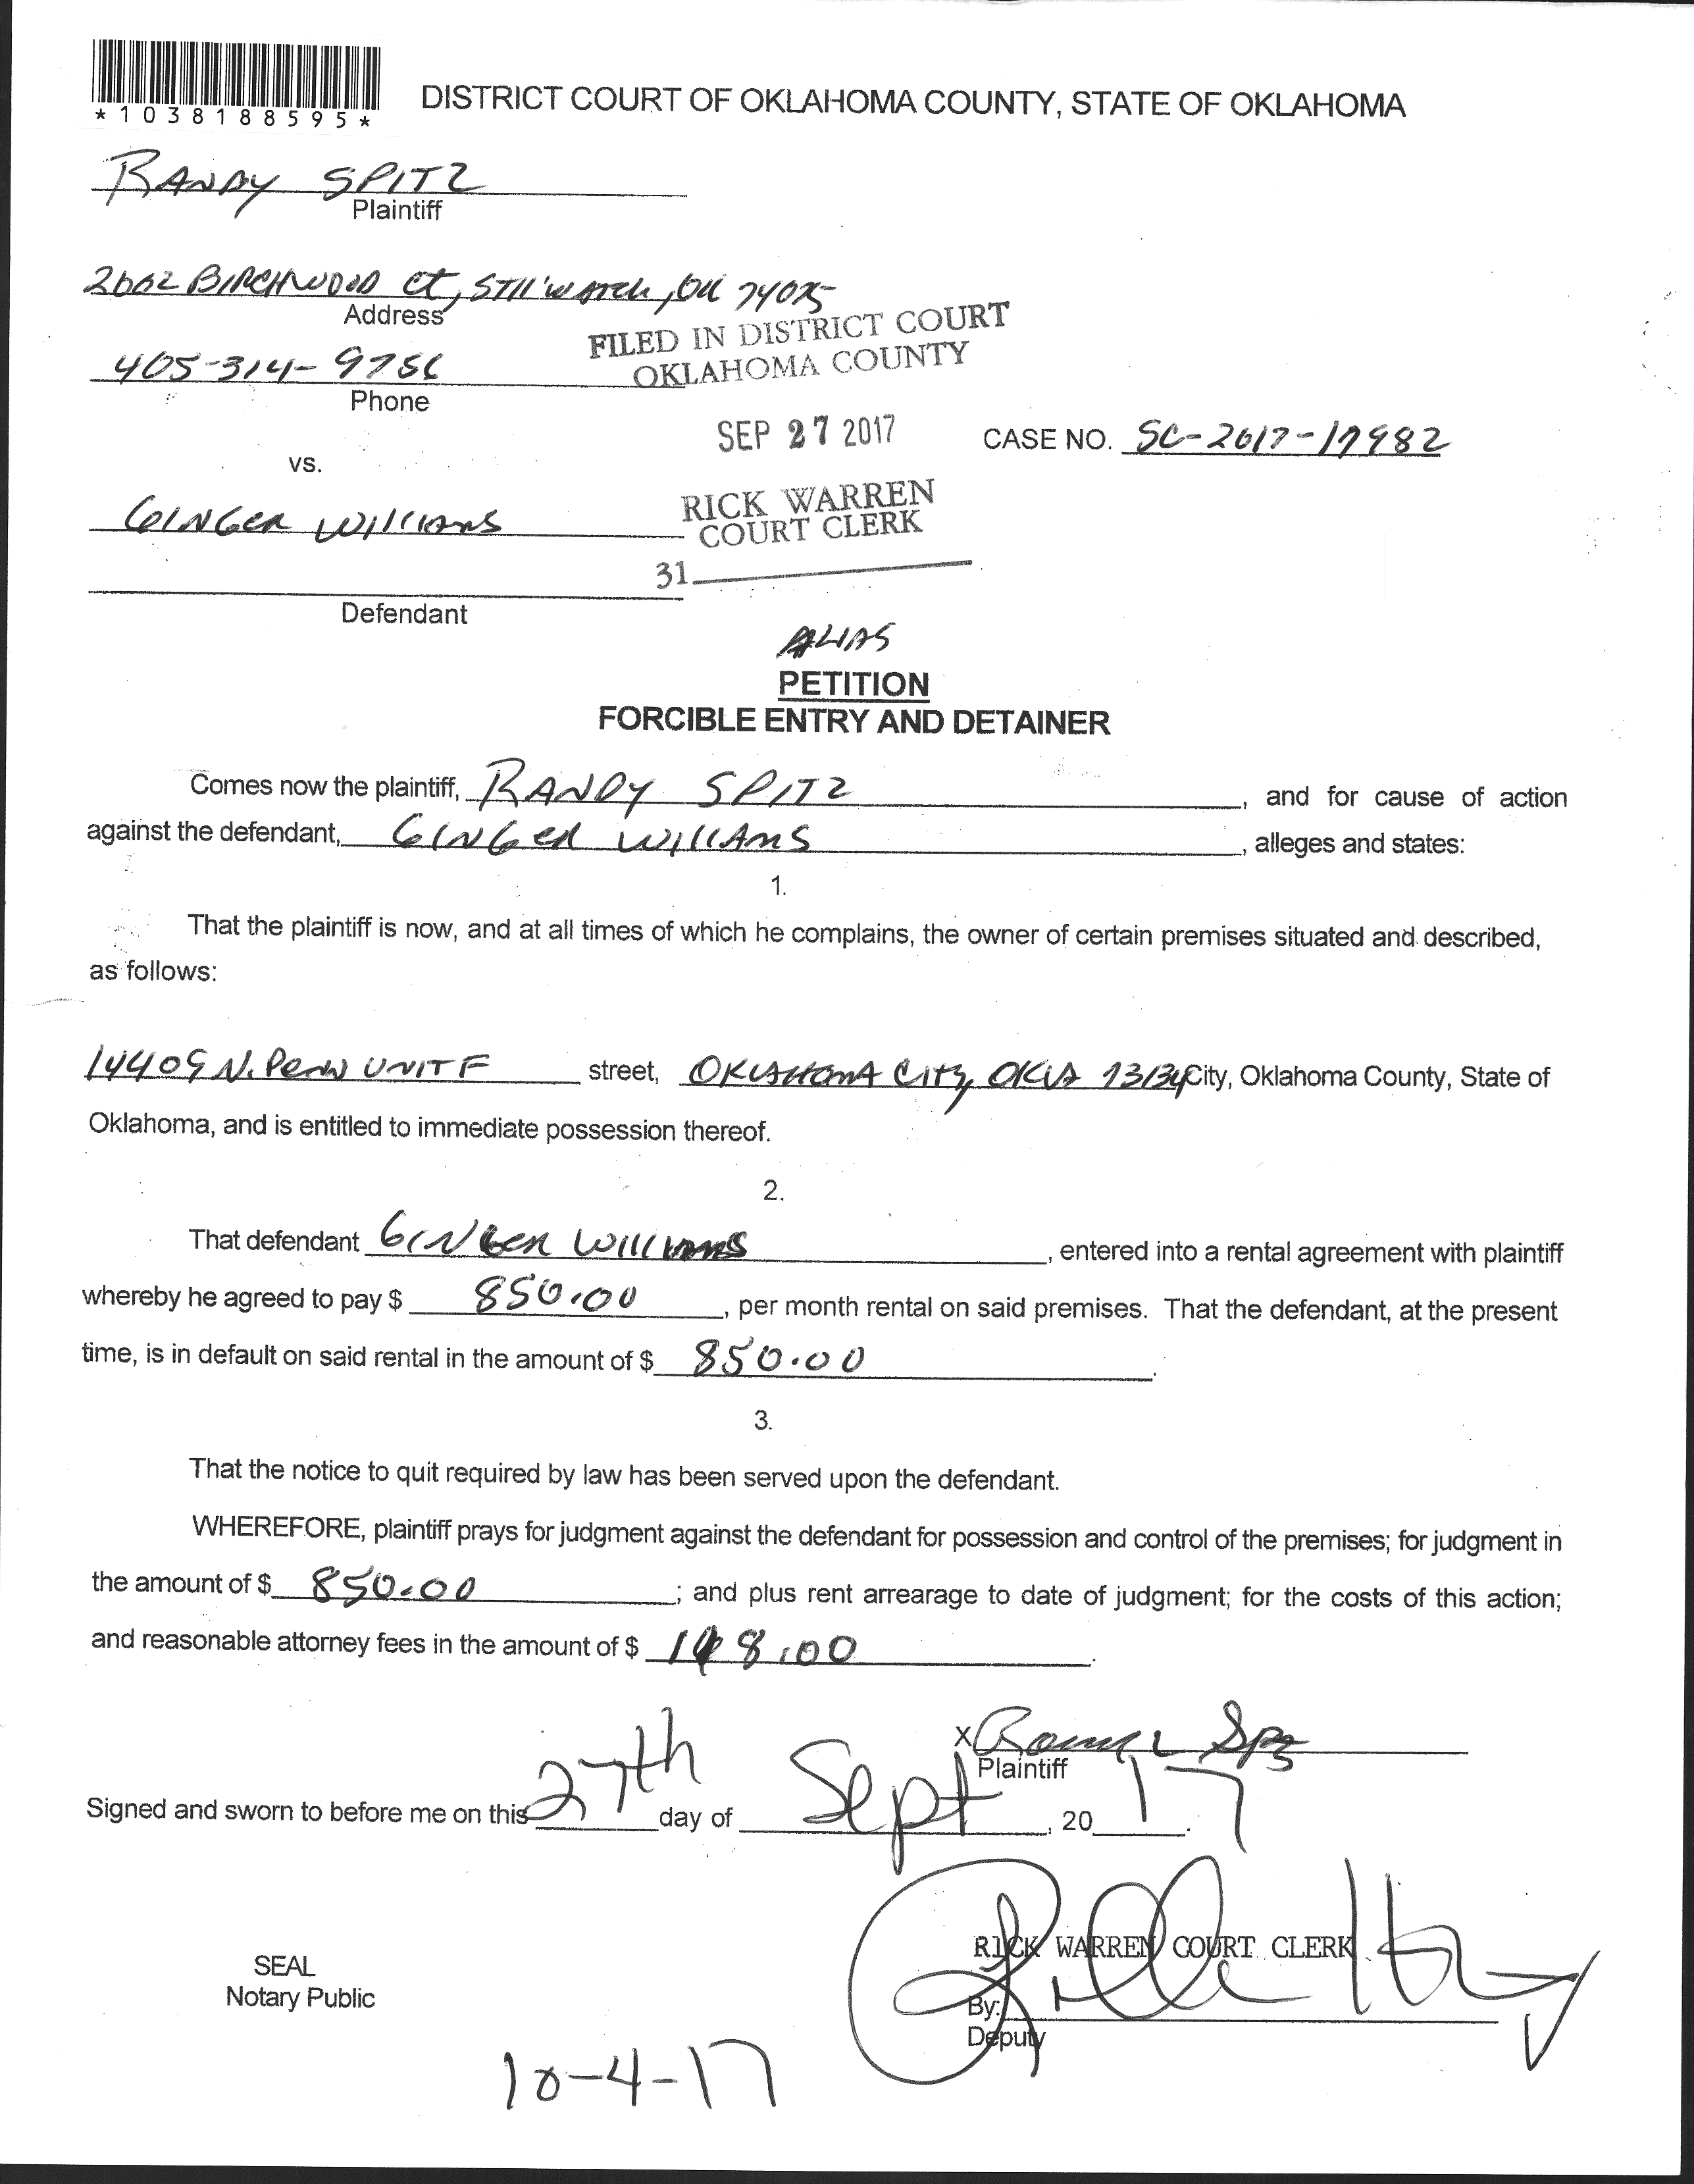 *1038188595*
DISTRICT COURT OF OKLAHOMA COUNTY, STATE OF OKLAHOMA
RANDY SPITZ
Plaintiff
BIRCHWOOD Ct, , OK
Address
405-314-9756
Phone
FILED IN DISTRICT COURT
OKLAHOMA COUNTY
SEP 27 2017
CASE NO. SC-2017-17982
vs.
GINGER WILLIAMS
RICK WARREN
COURT CLERK
31
Defendant
ALIAS
PETITION
FORCIBLE ENTRY AND DETAINER
Comes now the plaintiff, RANDY SPITZ, and for cause of action
against the defendant, GINGER WILLIAMS, alleges and states:
1.
That the plaintiff is now, and at all times of which he complains, the owner of certain premises situated and described,
as follows:
14409 N. PENN UNIT F street, OKLAHOMA CITY, OKLA 73134 City, Oklahoma County, State of
Oklahoma, and is entitled to immediate possession thereof.
2.
That defendant GINGER WILLIAMS, entered into a rental agreement with plaintiff
whereby he agreed to pay $ 850.00, per month rental on said premises. That the defendant, at the present
time, is in default on said rental in the amount of $ 850.00.
3.
That the notice to quit required by law has been served upon the defendant.
WHEREFORE, plaintiff prays for judgment against the defendant for possession and control of the premises; for judgment in
the amount of $ 850.00; and plus rent arrearage to date of judgment; for the costs of this action;
and reasonable attorney fees in the amount of $ .
X
Plaintiff
Signed and sworn to before me on this 27th day of Sept, 20 17.
RICK WARREN COURT CLERK
SEAL
Notary Public
By:
Deputy
10-4-17